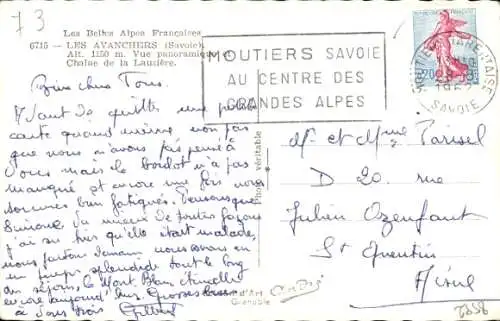 73
Les Belles Alpes Françaises
6715 - LES AVANCHERS (Savoie)
Alt. 1150 m. Vue panoramique
Chaîne de la Lauzière.
MOUTIERS SAVOIE
AU CENTRE DES
GRANDES ALPES
MOUTIERS TARENTAISE
SAVOIE
Bien chers Tous.
Avant de quitter une petite
carte quand même, non pas
que nous n'avons pas pensé à
vous mais le boulot n'a pas
manqué et encore une fois nous
sommes bien fatigués.
Simone, du mieux de toutes façons
j'ai su hier qu'elle était malade,
nous partons demain nous avons eu
un temps splendide tout le long
du séjour, le Mont Blanc étincelle
encore aujourd'hui. Grosses bises
à vous trois Gilbert
Photo véritable
Mr et Mme Parisel
D 20 rue
Julien Ozenfant
St Quentin
Aisne
d'Art André
Grenoble